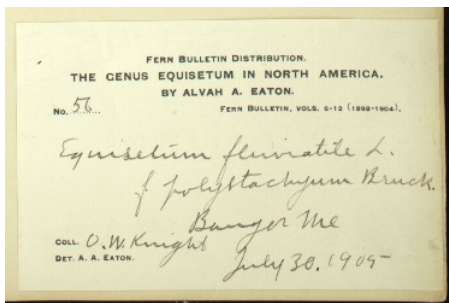 FERN BULLETIN DISTRIBUTION.
THE GENUS EQUISETUM IN NORTH AMERICA.
BY ALVAH A. EATON.
No. 56 FERN BULLETIN, VOLS. 6-12 (1898-1904).
Equisetum fluviatile L.
f polystachyum Bruck.
Bangor Me
COLL. O. W. Knight
DET. A. A. EATON. July 30. 1905